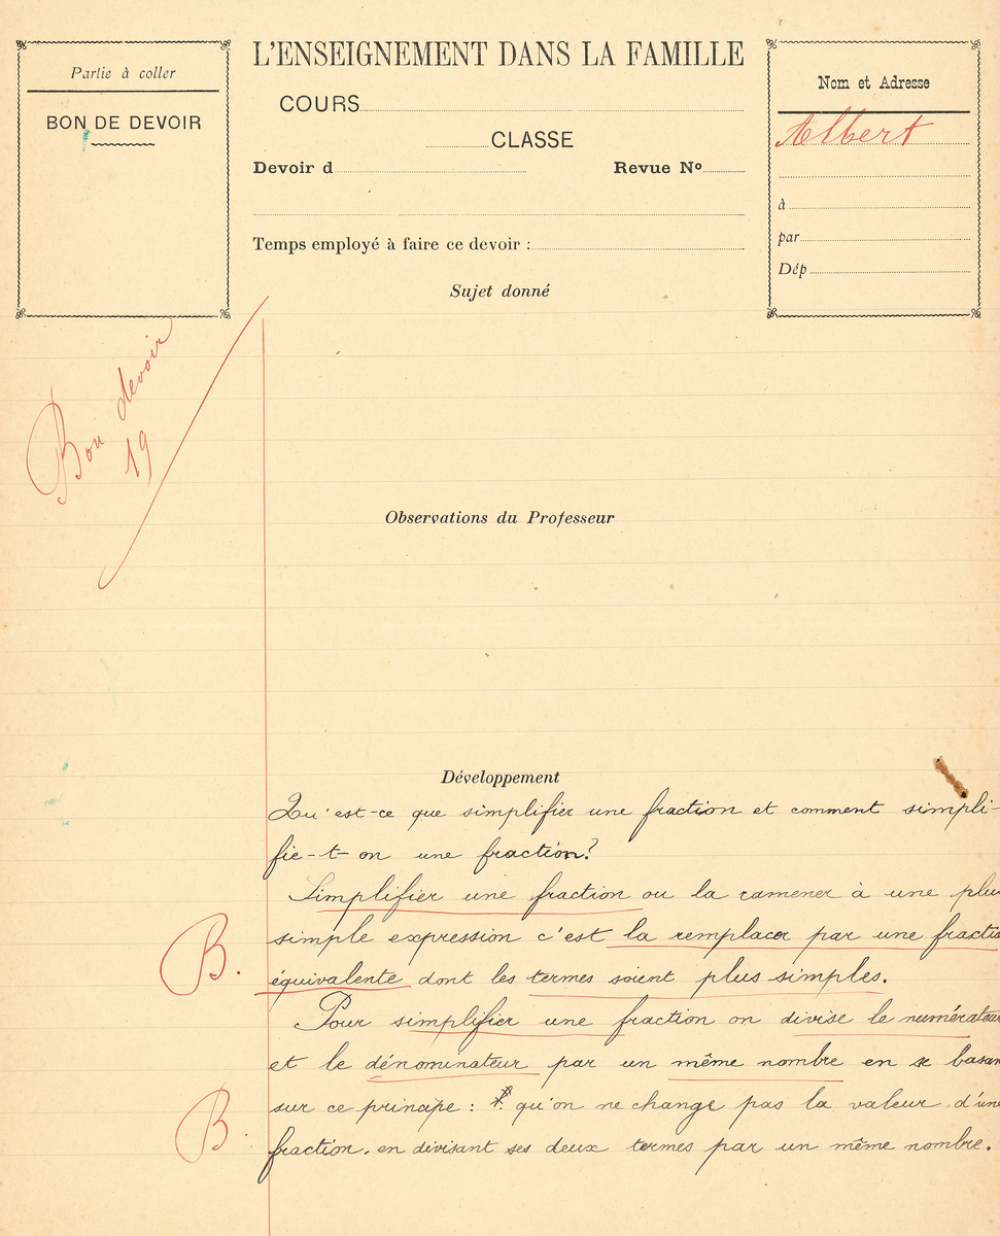 Partie à coller
BON DE DEVOIR
L'ENSEIGNEMENT DANS LA FAMILLE
COURS
CLASSE
Devoir d
Revue Nº
Temps employé à faire ce devoir :
Sujet donné
Nom et Adresse
Albert
à
par
Dép
Bon devoir
19
Observations du Professeur
Développement
Qu'est-ce que simplifier une fraction et comment simpli-
fie-t-on une fraction?
Simplifier une fraction ou la ramener à une plus
simple expression c'est la remplacer par une fractio
B. équivalente dont les termes soient plus simples.
Pour simplifier une fraction on divise le numérateur
et le dénominateur par un même nombre en se basan
sur ce principe : qu'on ne change pas la valeur d'une
B. fraction. en divisant ses deux termes par un même nombre.